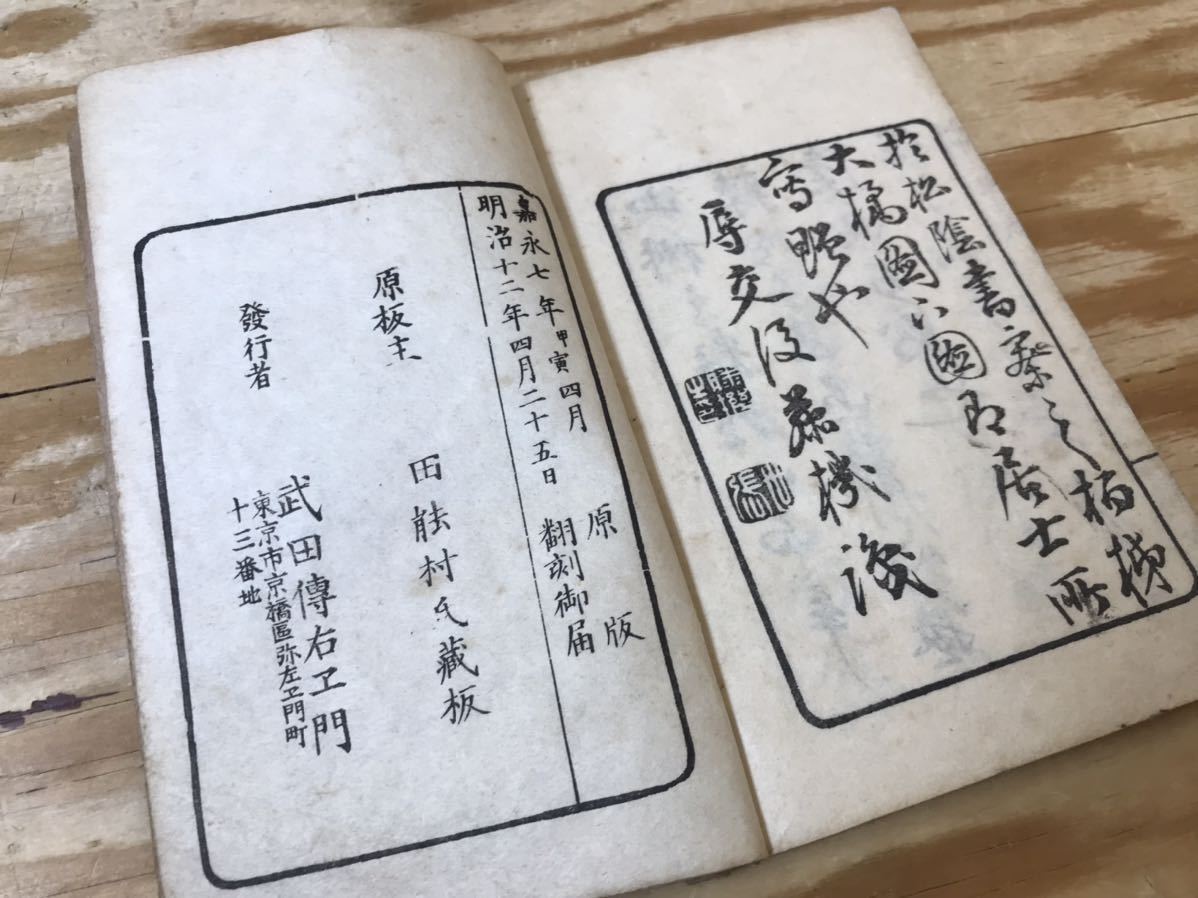 於松陰書寮之梧梯
大橘圖下 即居士所
辱交後藤機識
嘉永七年甲寅四月 原版
明治十二年四月二十五日 翻刻御届
原板主 田能村氏藏板
發行者 武田傳右ヱ門
東京市京橋區弥左ヱ門町
十三番地